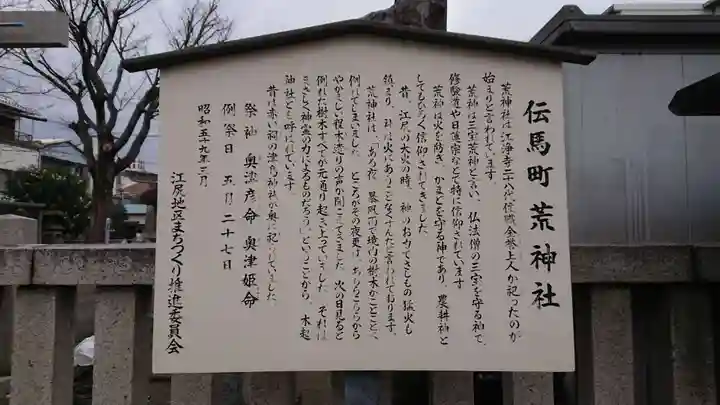 伝馬町荒神社
荒神社は江浄寺二十八代住職金誉上人が祀ったのが
始まりと言われています。
荒神は三宝荒神と言い、仏法僧の三宝を守る神で、
修験道や日蓮宗などで特に信仰されています
荒神は火を防ぎ、かまどを守る神であり、農耕神と
してもひろく信仰されてきました。
昔、江尻の大火の時、神のおかげでさしもの猛火も
鎮まり、町は火にあうことなくすんだと言われております。
荒神社は、「ある夜、暴風雨で境内の樹木がことごとく
倒れてしまいました。ところがその夜更け、あちらこちらから
やかましい程木遣りの声が聞こえてきました。次の日見ると
倒れた樹木すべてが元通り起き上っていました。それは
まさしく神霊の力によるものだろう」ということから、木起
油社とも呼ばれています。
昔は赤い祠の津島神社が奥に祀られていました。
祭神 奥津彦命 奥津姫命
例祭日 五月二十七日
昭和五十九年三月
江尻地区まちづくり推進委員会